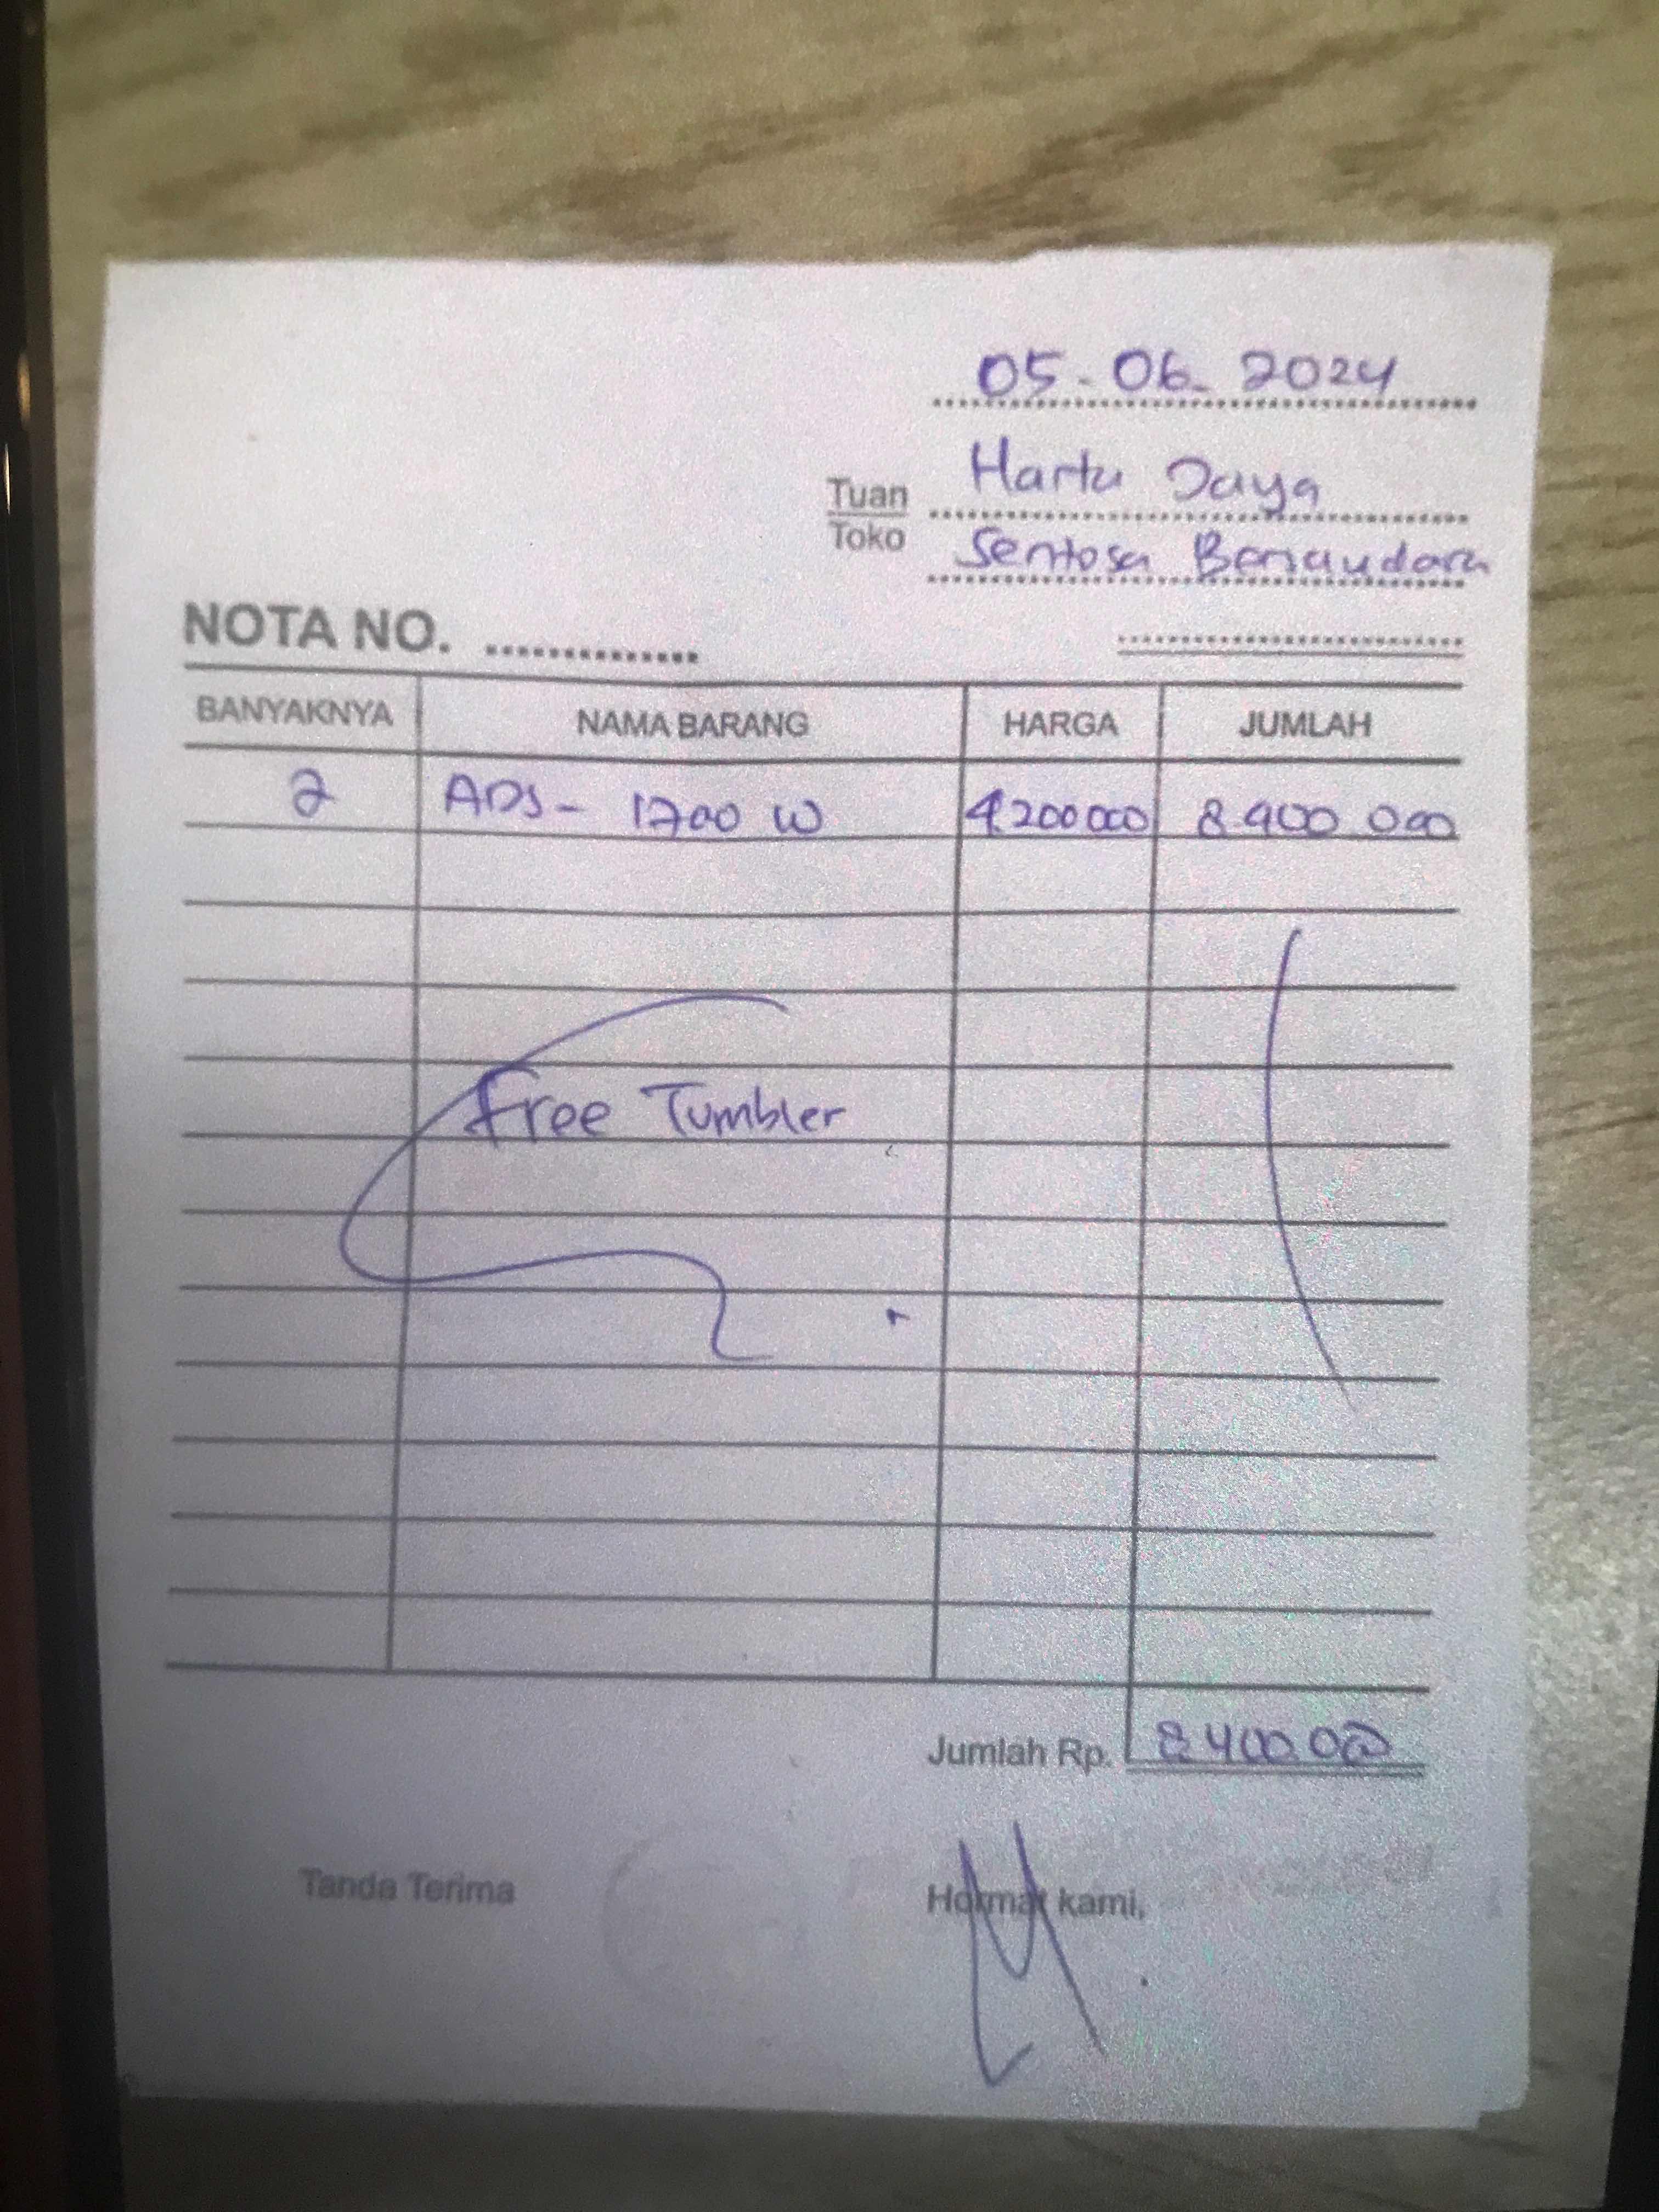 05-06-2024
Tuan Hartu Jaya
Toko Sentosa Bersaudara
NOTA NO.
BANYAKNYA NAMA BARANG HARGA JUMLAH
2 ADS - 1700 W 4.200 000 8.400 000
Free Tumbler
Jumlah Rp. 8.400.000
Tanda Terima Hormat kami,